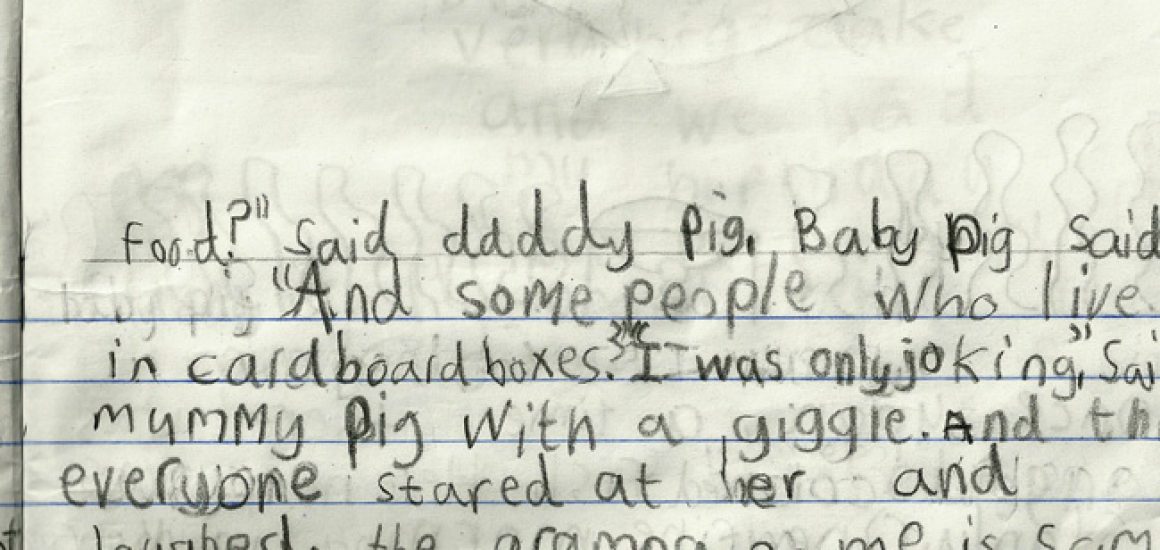 food?" Said daddy pig. Baby pig said
"And some people who live
in cardboard boxes." "I was only joking," Sai
mummy pig with a giggle. And th
everyone stared at her and
laughed. the